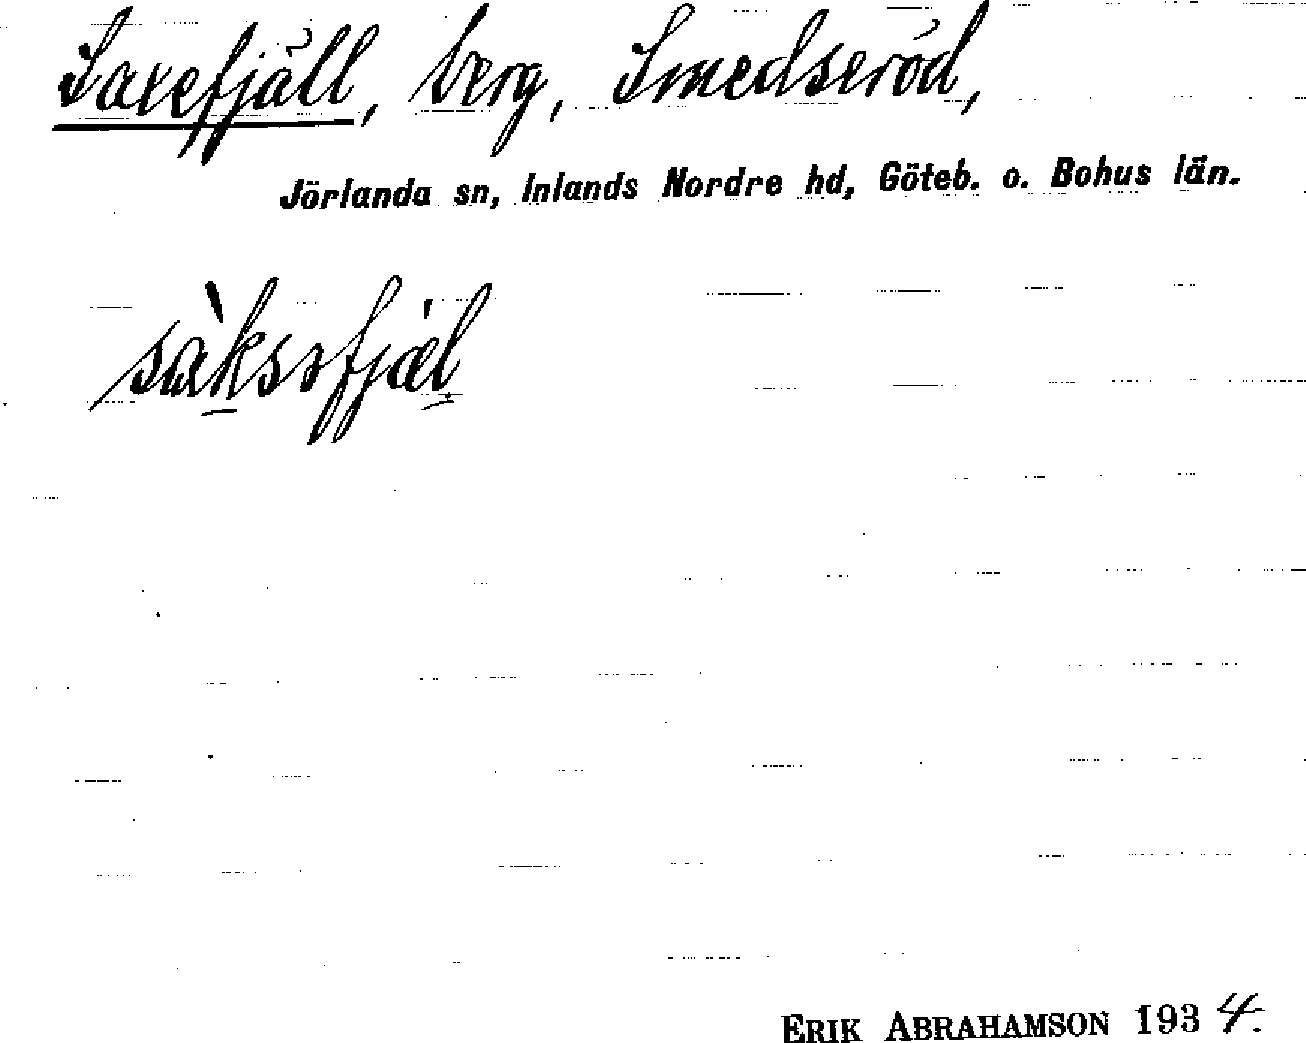 Saxefjäll, berg, Smedseröd,
Jörlanda sn, Inlands Nordre hd, Göteb. o. Bohus län.
sàksəfjæ̍l
ERIK ABRAHAMSON 1934.